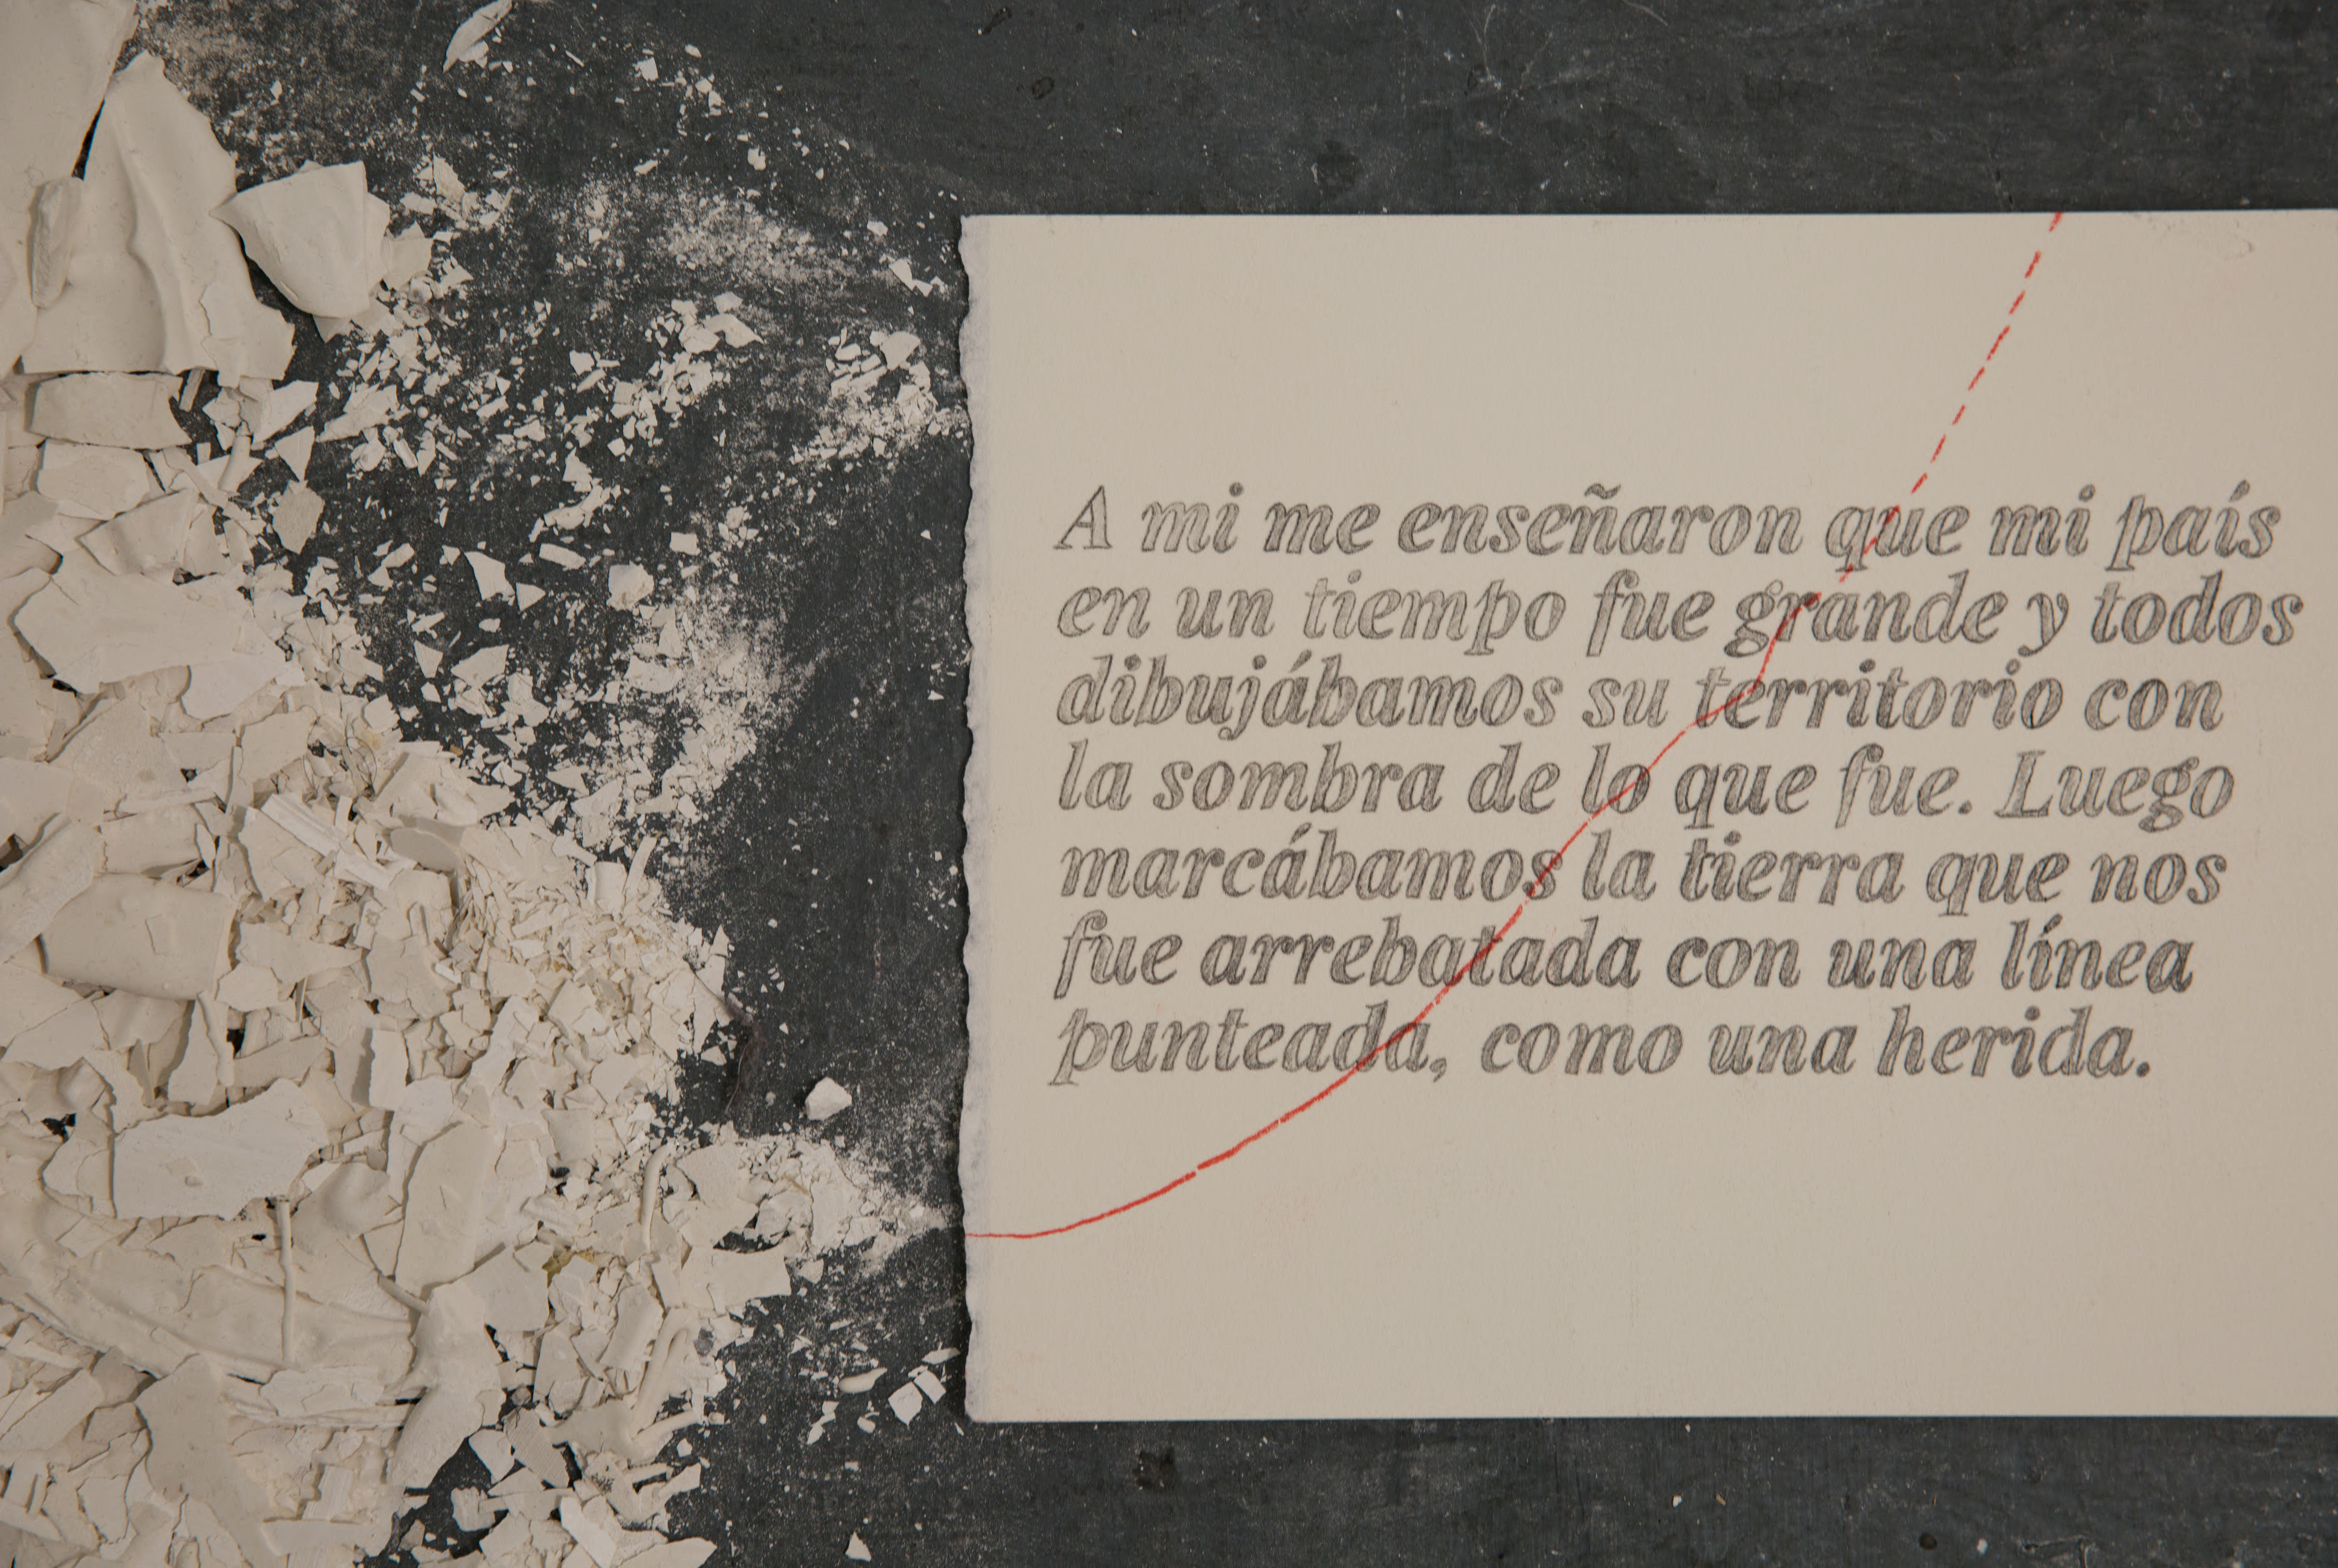 A mi me enseñaron que mi país
en un tiempo fue grande y todos
dibujábamos su territorio con
la sombra de lo que fue. Luego
marcábamos la tierra que nos
fue arrebatada con una línea
punteada, como una herida.